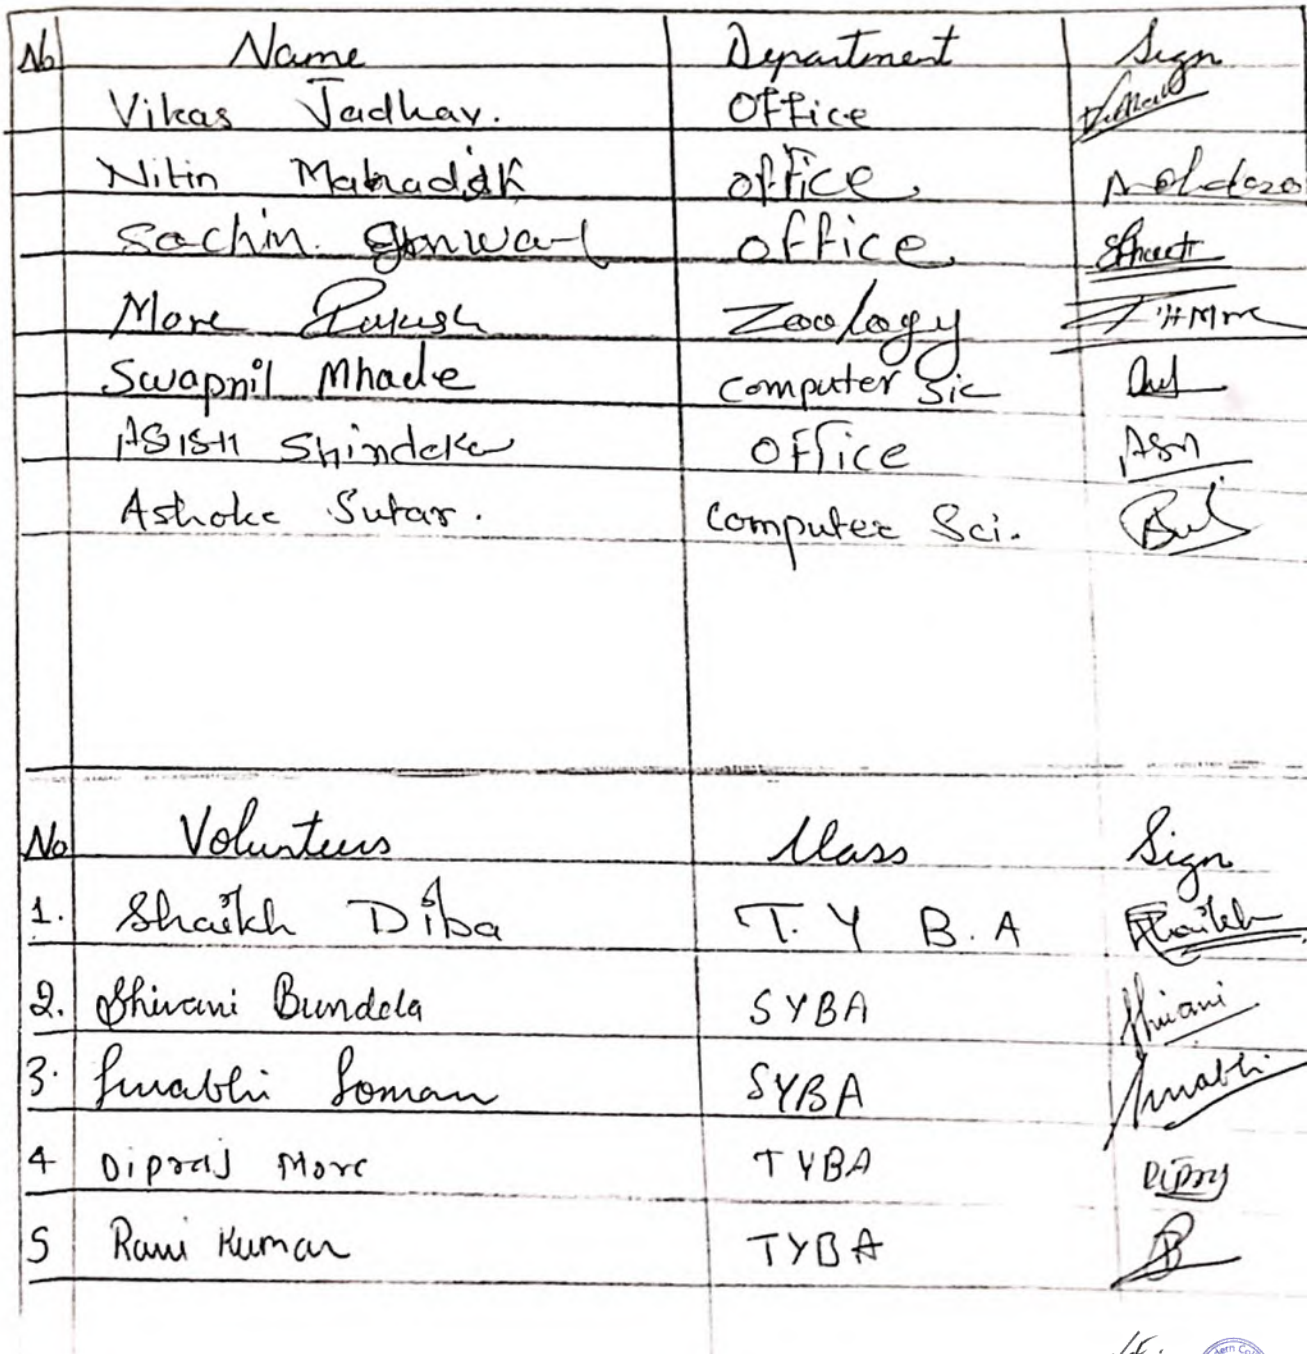 No Name Department Sign
Vikas Jadhav. Office
Nitin office
Sachin office
More Zoology
Swapnil Mhade Computer Sic
ASISH Shindeke Office
Ashoke Sutar. Computer Sci.
No Volunteers Class Sign
1. Shaikh Diba T. Y B. A Shaikh
2. Shivani Bundela SYBA Shivani
3. Soman SYBA
4 Dipraj More TYBA Dipraj
5 Rani Kumar TYBA